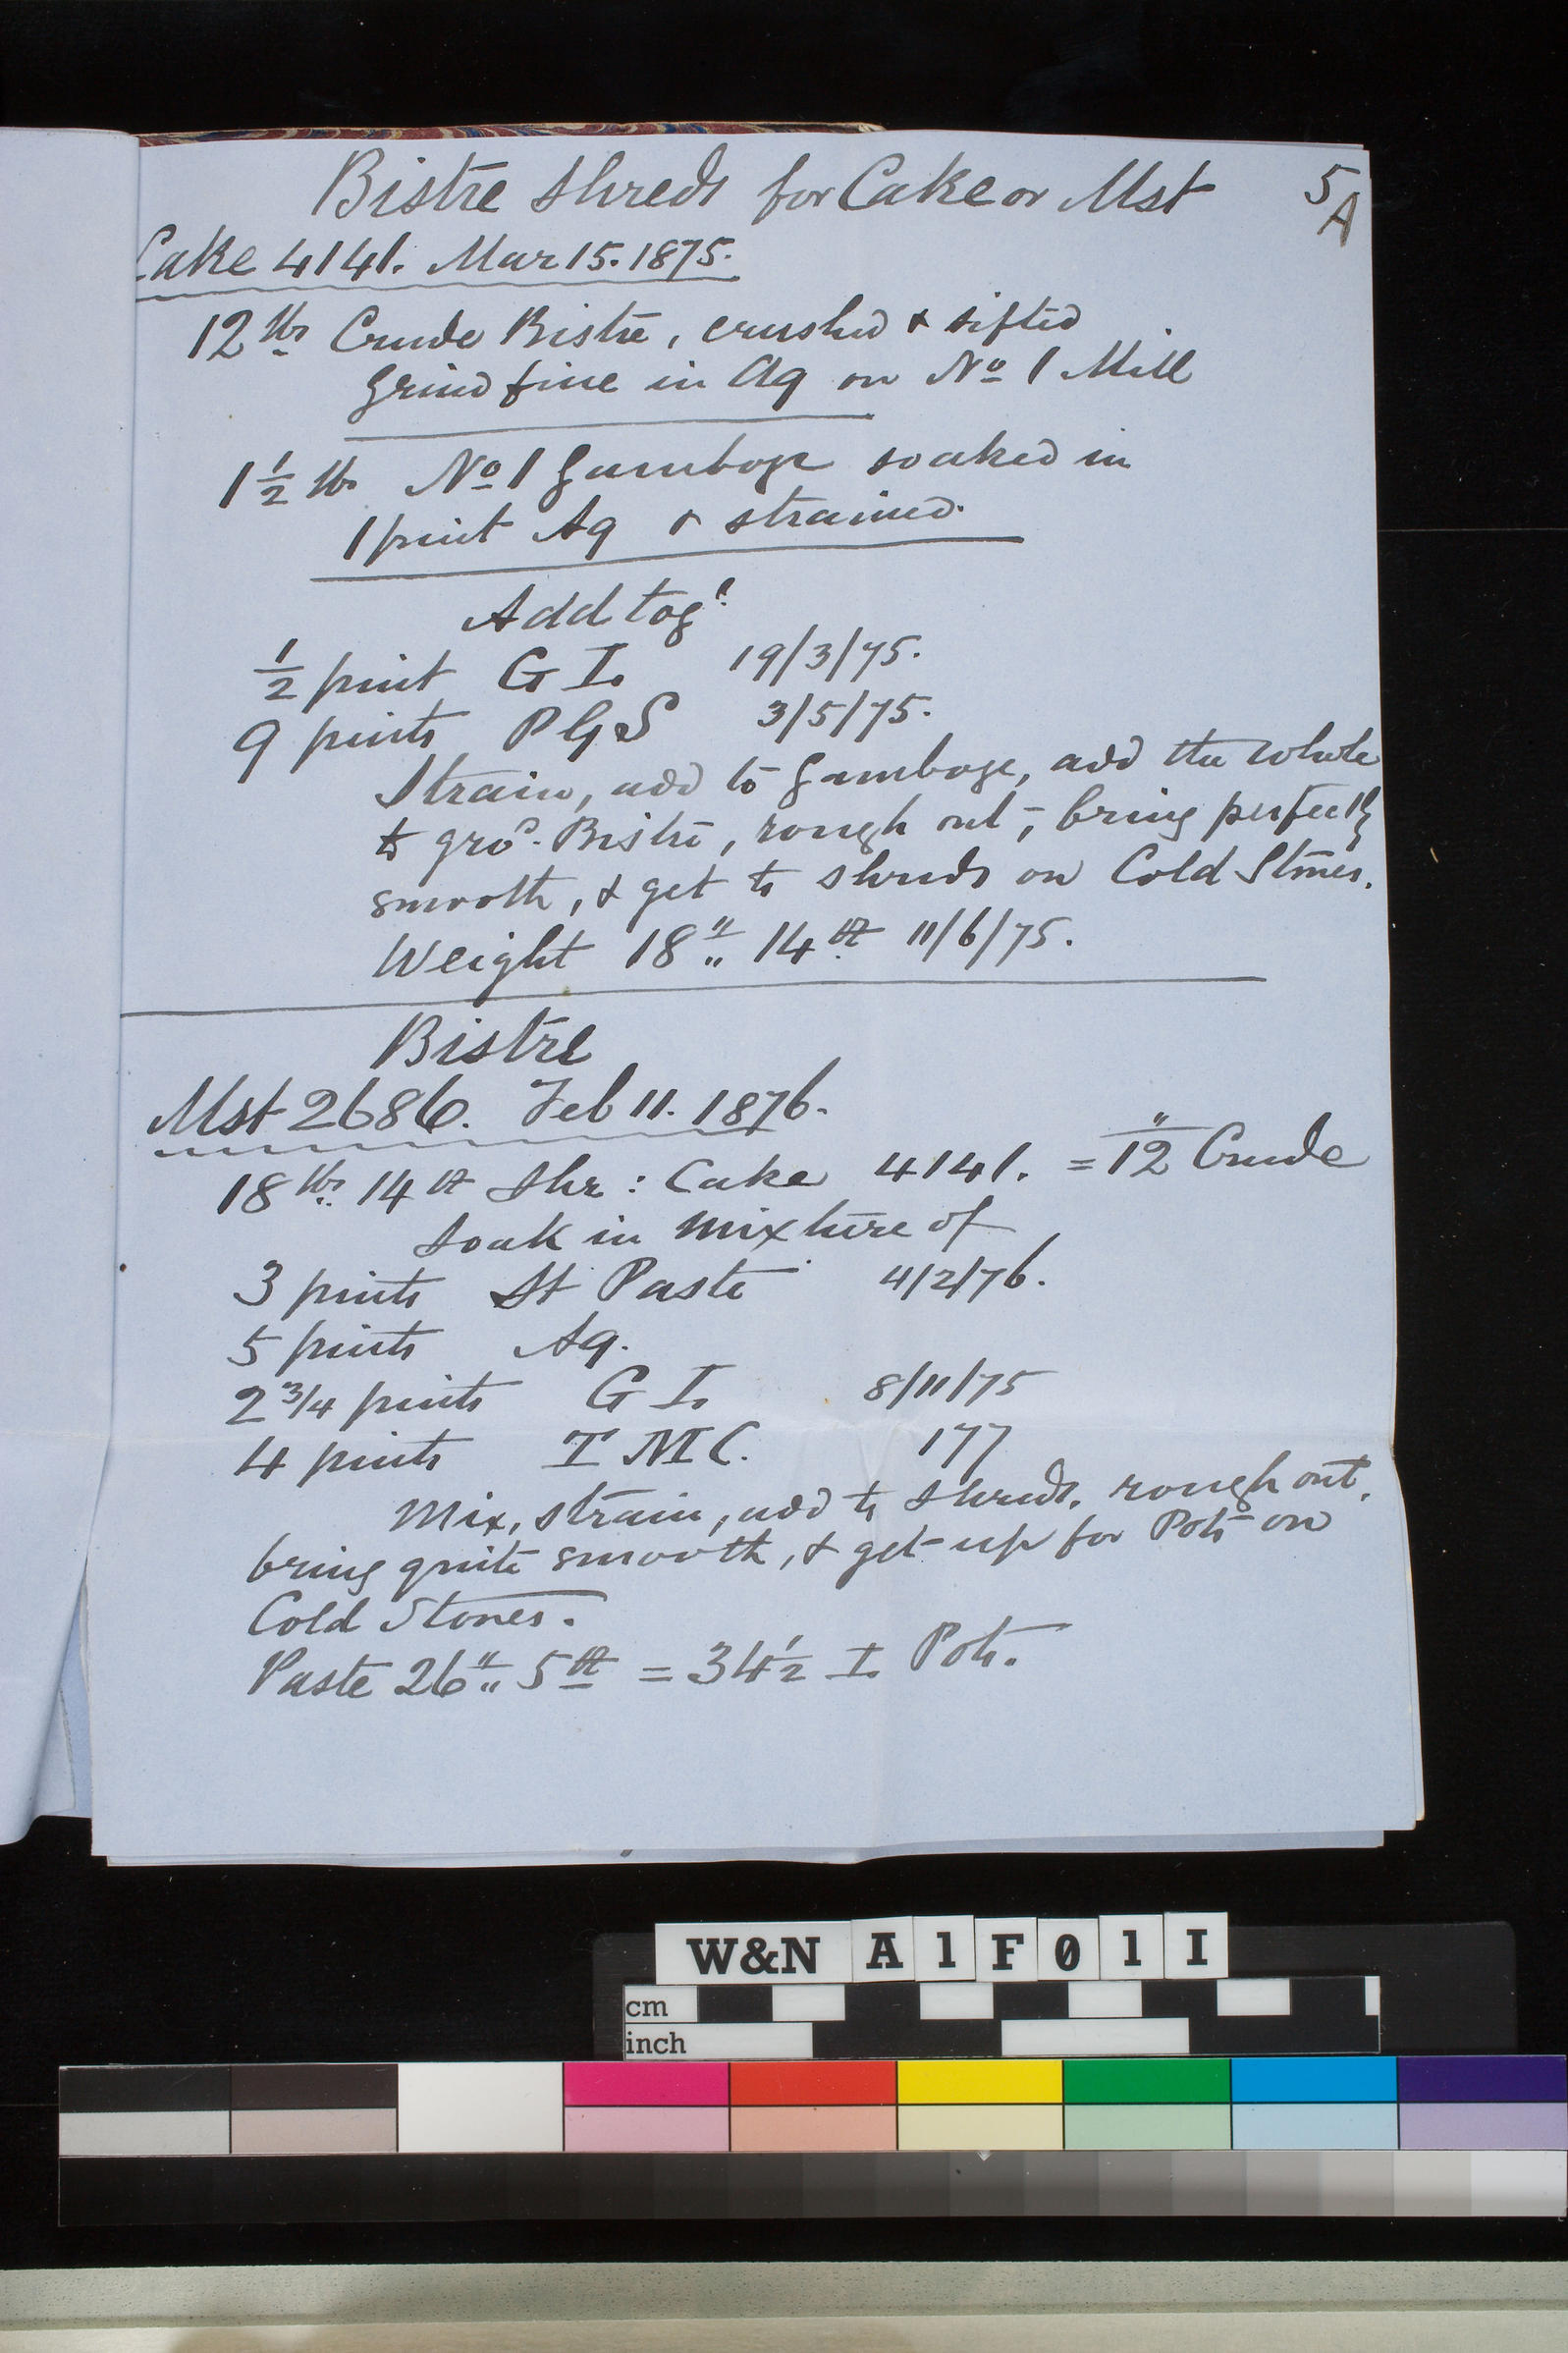 Bistre Shreds for Cake or Mst
5A
Cake 4141. Mar 15. 1875.
12 lbs Crude Bistre, crushed & sifted
Grind fine in Aq on No 1 Mill
1 1/2 lb No 1 Gamboge soaked in
1 pint Aq & strained.
Add togr.
1/2 pint G I. 19/3/75.
9 pints P G S 3/5/75.
Strain, add to Gamboge, add the whole
to grod. Bistre, rough out, bring perfectly
smooth, & get to shreds on Cold Stones.
Weight 18 " 14 oz 11/6/75.
Bistre
Mst 2686. Feb 11. 1876.
18 lbs. 14 oz Shr: Cake 4141. = 12" Crude
Soak in mixture of
3 pints St Paste 4/2/76.
5 pints Aq.
2 3/4 pints G I. 8/11/75
4 pints T M C. 177
Mix, strain, add to shreds, rough out,
bring quite smooth, & get up for Pots on
Cold Stones.
Paste 26 " 5 oz = 34 1/2 I. Pots.
W&N A1F01I
cm
inch